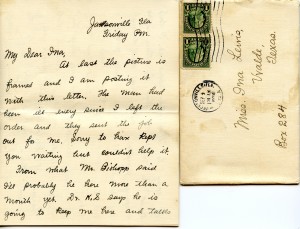 Jacksonville Fla
Friday Pm.
My Dear Ina,
At last the picture is
framed and I am posting it
with this letter. The man had
been so busy since I left the
order and they sent the job
out for me. Sorry to have kept
you waiting but couldn't help it.
From what Mr. Bishopp said
I'll probably be here more than a
month yet. Dr. K.S says he is
going to keep me here and
Miss Ina Lewis,
Uvalde,
Texas.
Box 284